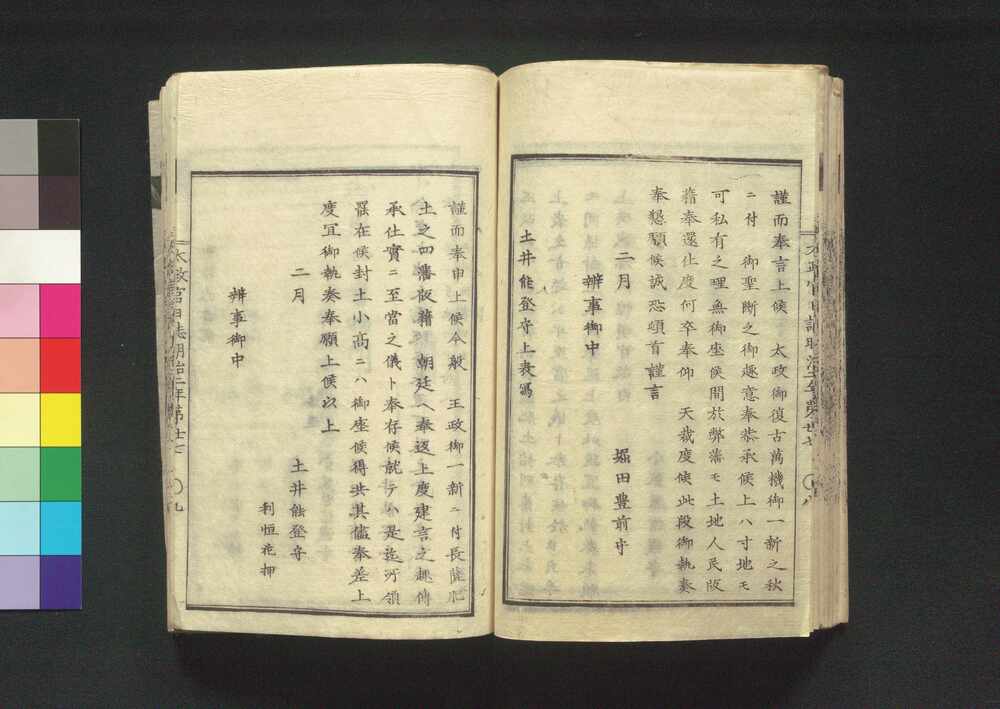 謹而奉言上候　太政御復古萬機御一新之秋
ニ付　御聖断之御趣意奉恭承候上ハ寸地モ
可私有之理無御座候間於弊藩モ土地人民版
籍奉還仕度何卒奉仰　天裁度候此段御執奏
奉懇願候誠恐頓首謹言
二月　堀田豊前守
辨事御中
土井能登守上表写
謹而奉申上候今般　王政御一新ニ付長薩肥
土之四藩版籍　朝廷ヘ奉返上度建言之趣傳
承仕實ニ至當之儀ト奉存候就テハ是迄所領
罷在候封土小高ニハ御座候得共其儘奉差上
度宜御執奏奉願上候以上
二月　土井能登守
利恒花押
辨事御中
太政官日誌明治二年第廿七　〇九